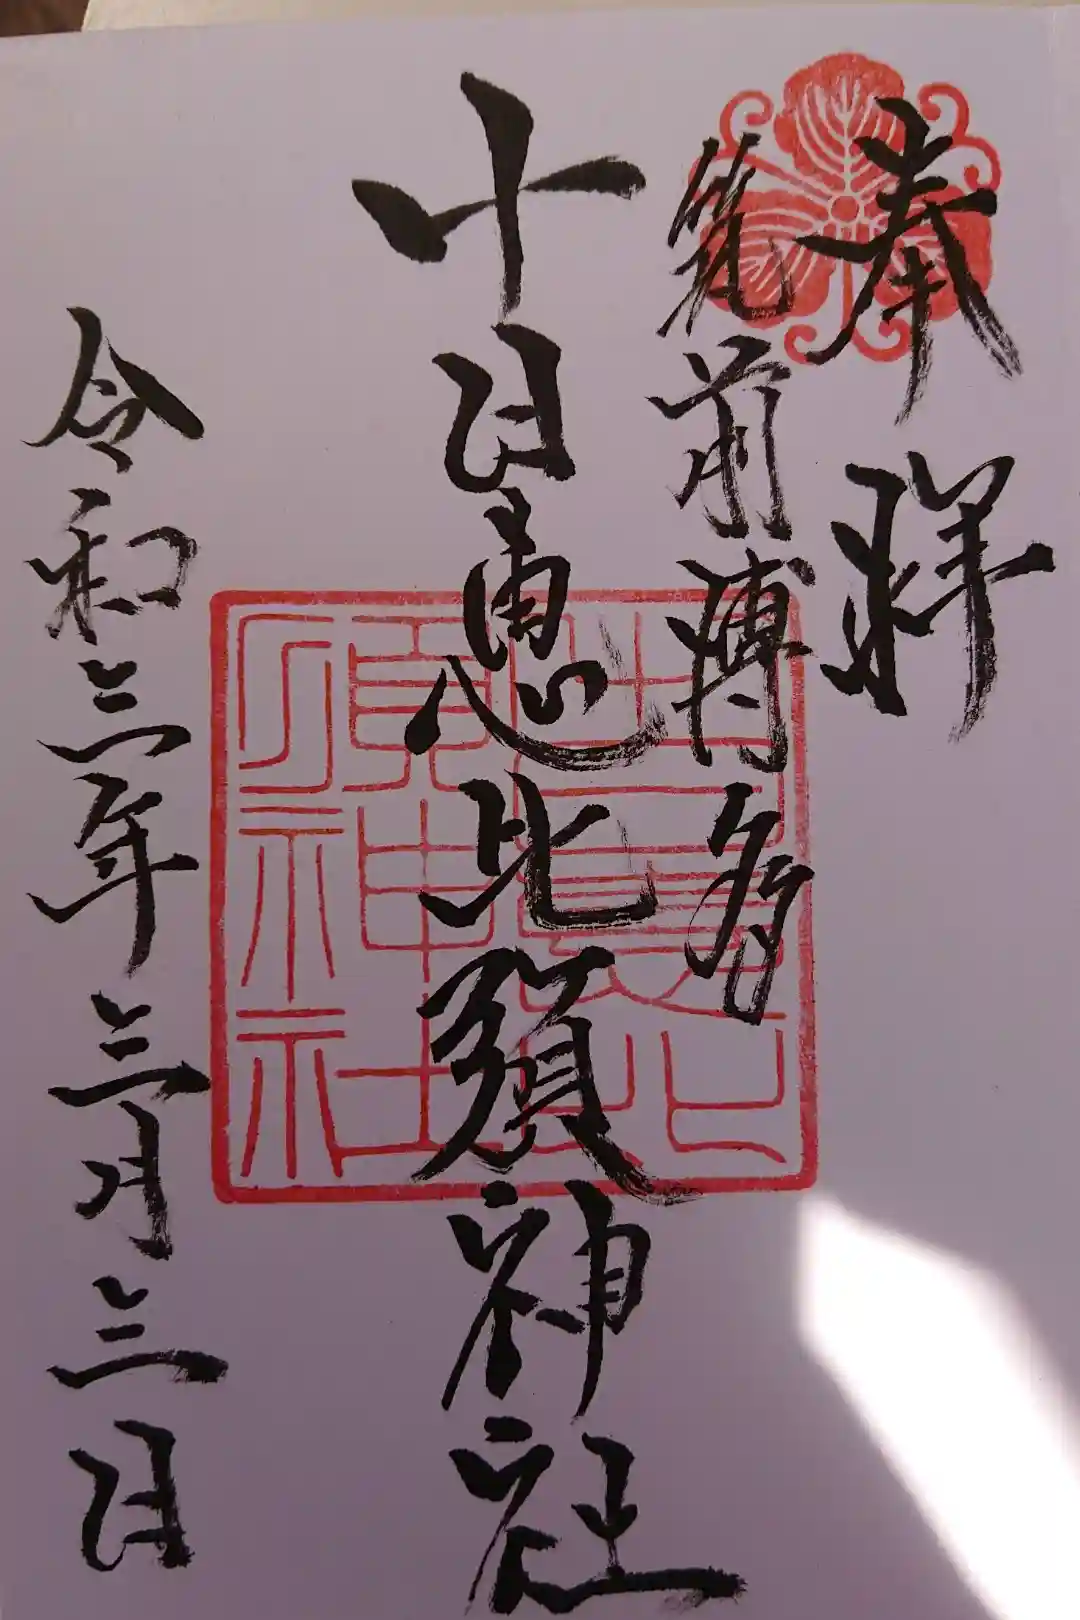 奉拝
筑前博多
十日恵比須神社
令和三年三月三日